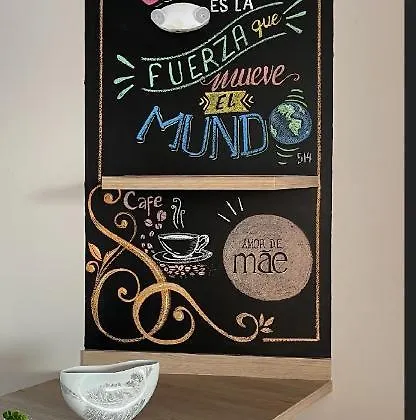 ES LA
FUERZA que
mueve
EL
MUNDO
514
Café
AMOR DE
mãe